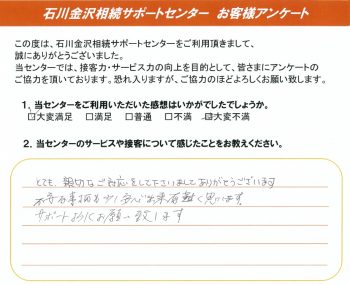 石川金沢相続サポートセンター お客様アンケート
この度は、石川金沢相続サポートセンターをご利用頂きまして、
誠にありがとうございました。
当センターでは、接客力・サービス力の向上を目的として、皆さまにアンケートの
ご協力を頂いております。恐れ入りますが、ご協力のほどよろしくお願い致します。
1、当センターをご利用いただいた感想はいかがでしたでしょうか。
☑大変満足 □満足 □普通 □不満 ☑大変不満
2、当センターのサービスや接客について感じたことをお教えください。
とても、親切なご対応をして下さいましてありがとうございます
不安な事柄も少し安心出来有難く思います。
サポートよろしくお願い致します